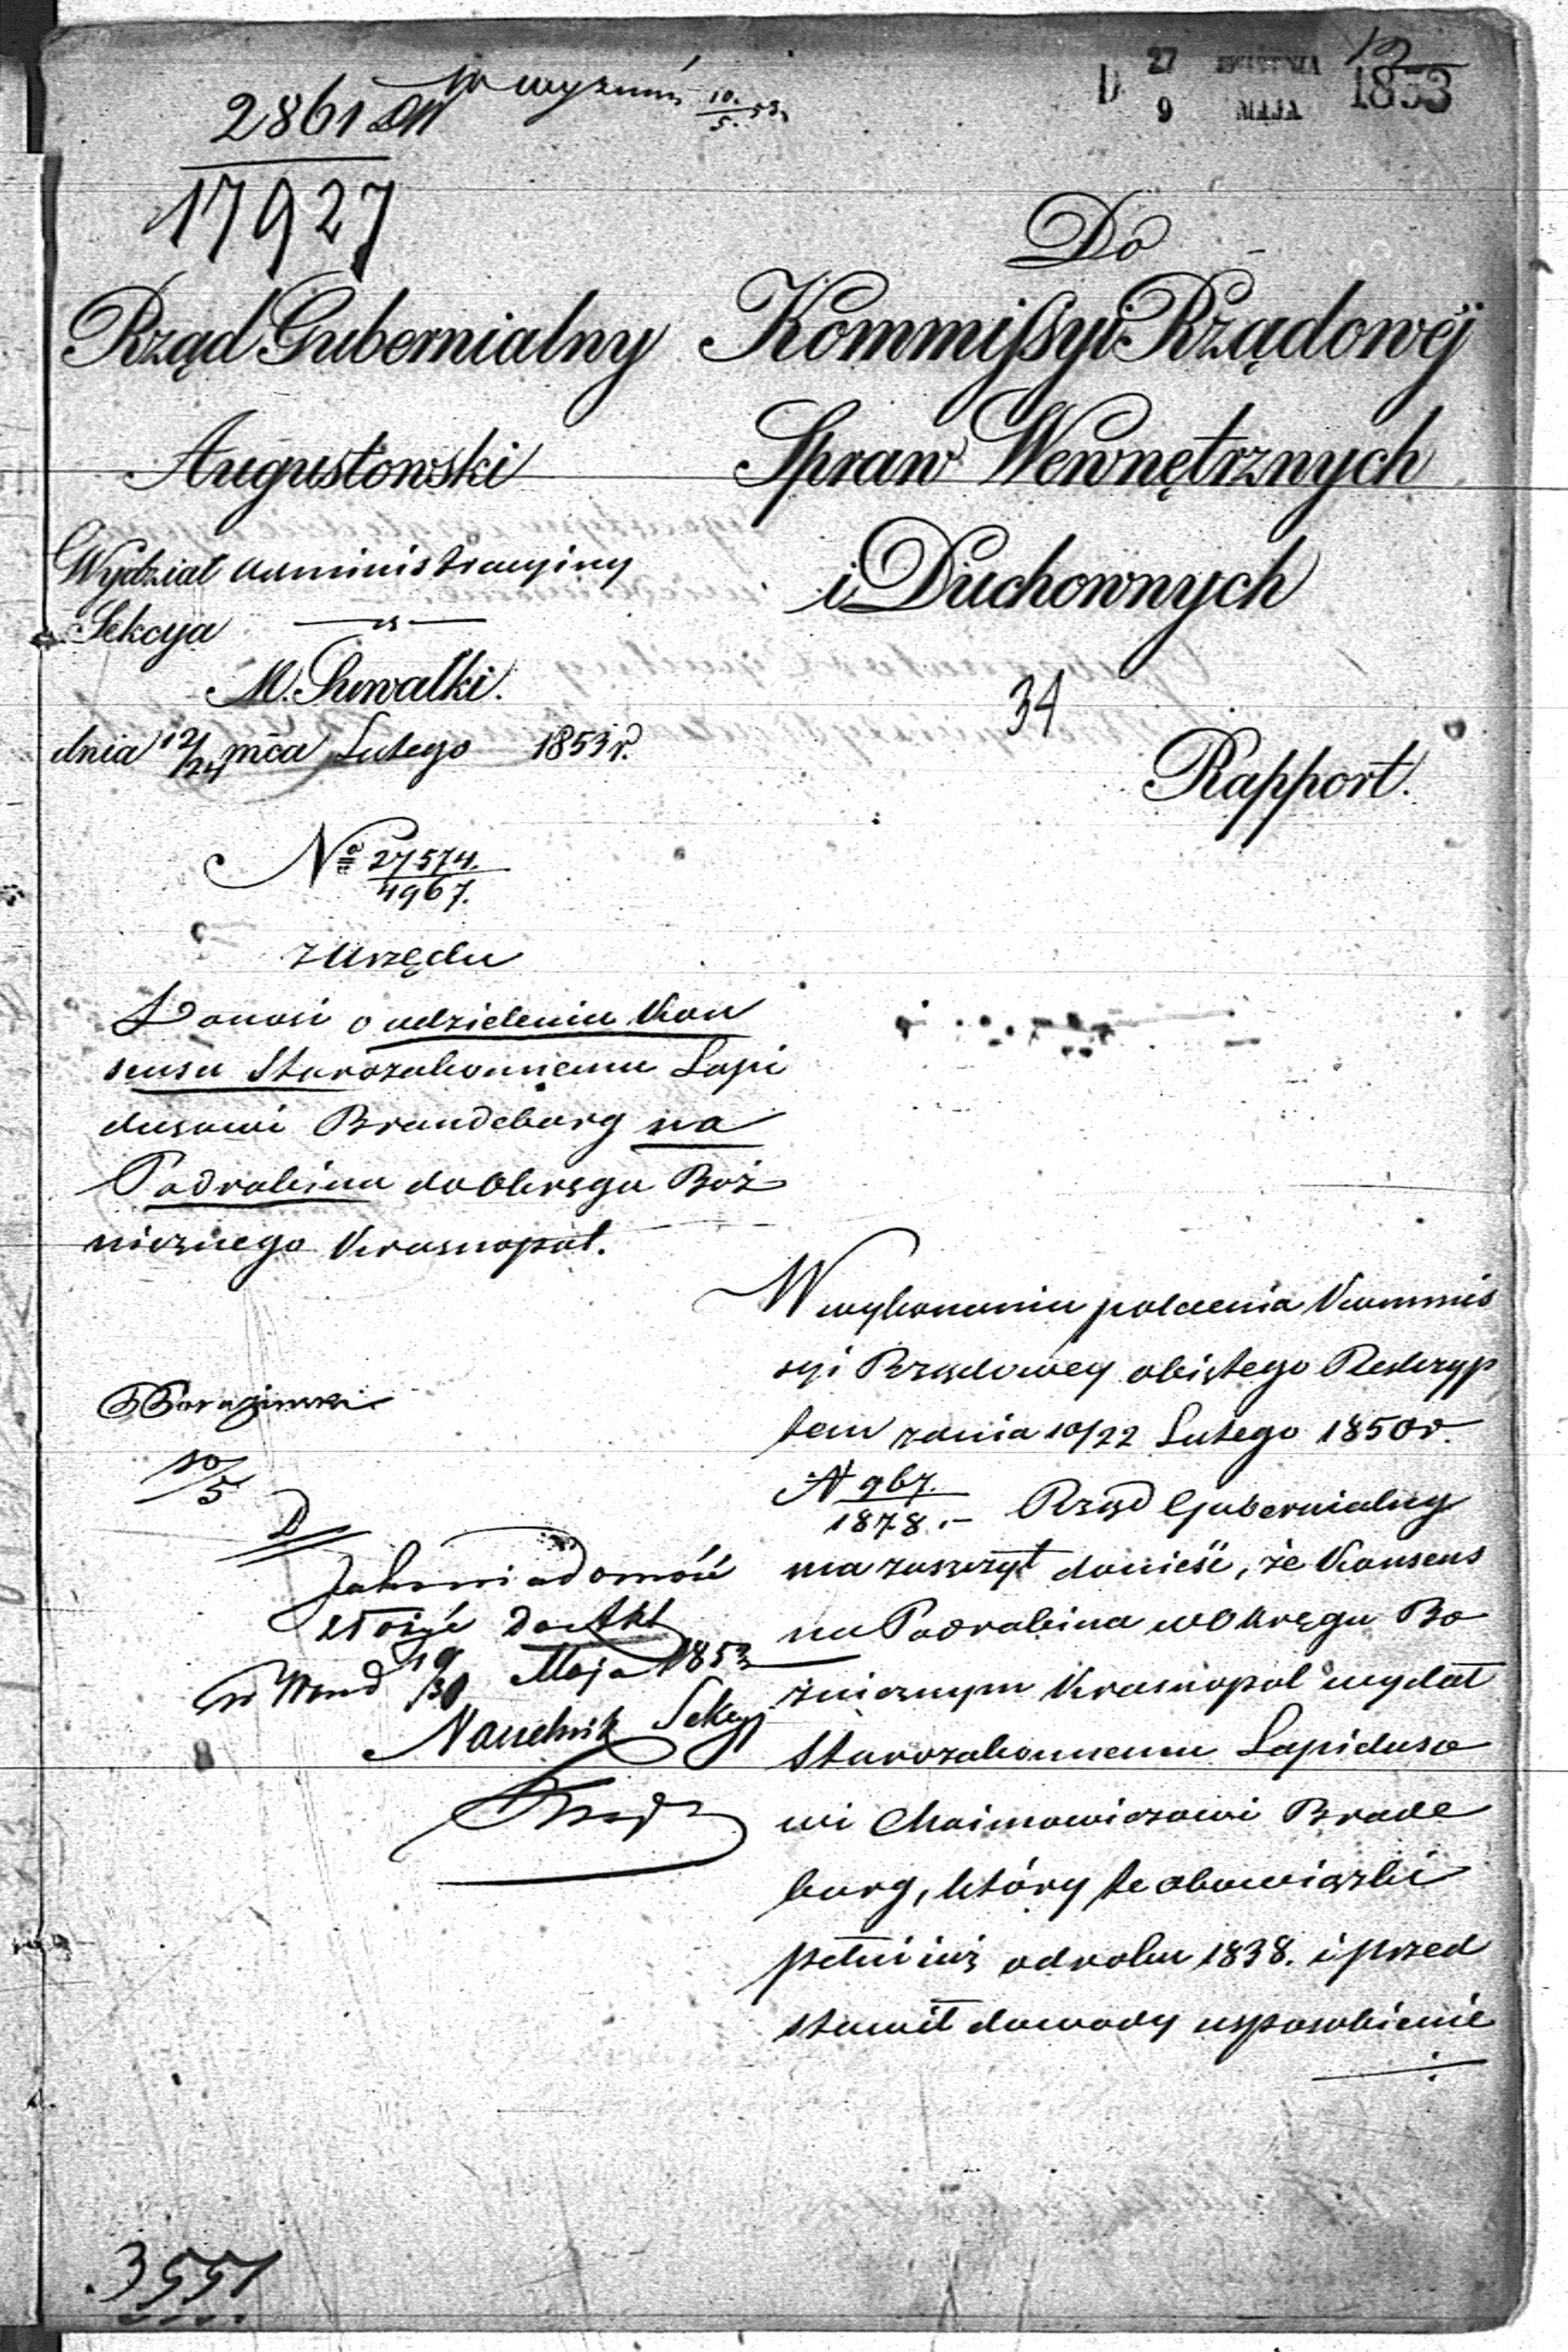 12
D. 27 KWIETNIA
9 MAJA 1853
2861
17927
10/5. 53.
Rząd Gubernialny
Augustowski
Wydział administracyjny
Sekcya
M. Suwałki.
dnia 12/24 mca Lutego 1853 r.
No 27574./4967.
z Urzędu
Donosi o udzieleniu Kon
sensu Starozakonnemu Lapi
dusowi Brandeburg na
Podrabina do Okręgu Boż
nicznego Krasnopol.
10/5
D
Jako wiadomość
złożyć do Akt
19/31 Maja 1853
Naczelnik Sekcyi
3551
Do
Kommissyi Rządowéj
Spraw Wewnętrznych
i Duchownych
34
Rapport.
W wykonaniu polecenia Kommis
syi Rządowey objętego Reskryp
tem z dnia 10/22 Lutego 1850 r.
N 967./1878.- Rząd Gubernialny
ma zaszczyt donieść, że Konsens
na Podrabina w Okręgu Bo
żnicznym Krasnopol wydał
Starozakonnemu Lapiduso
wi Chaimowiczowi Brade
burg, który te obowiązki
pełni iuż od roku 1838. i przed
stawił dowody usposobienie